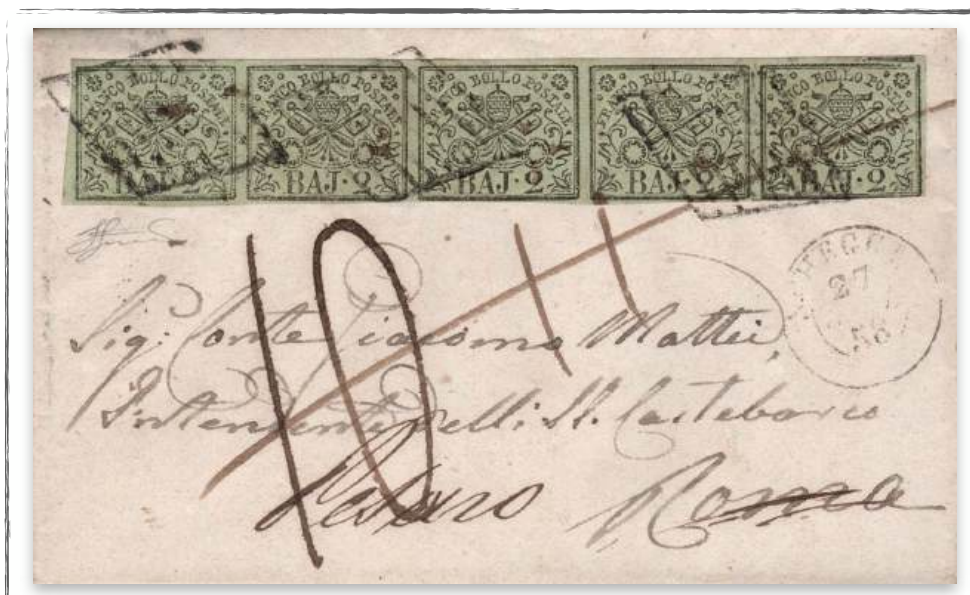 FRANCO BOLLO POSTALE FRANCO BOLLO POSTALE FRANCO BOLLO POSTALE FRANCO BOLLO POSTALE FRANCO BOLLO POSTALE
BAJ·2 BAJ·2 BAJ·2 BAJ·2 BAJ·2
10
27
Sig: Conte Giacomo Mattei,
Intendente delli SS. Castelbarco
Pesaro Roma